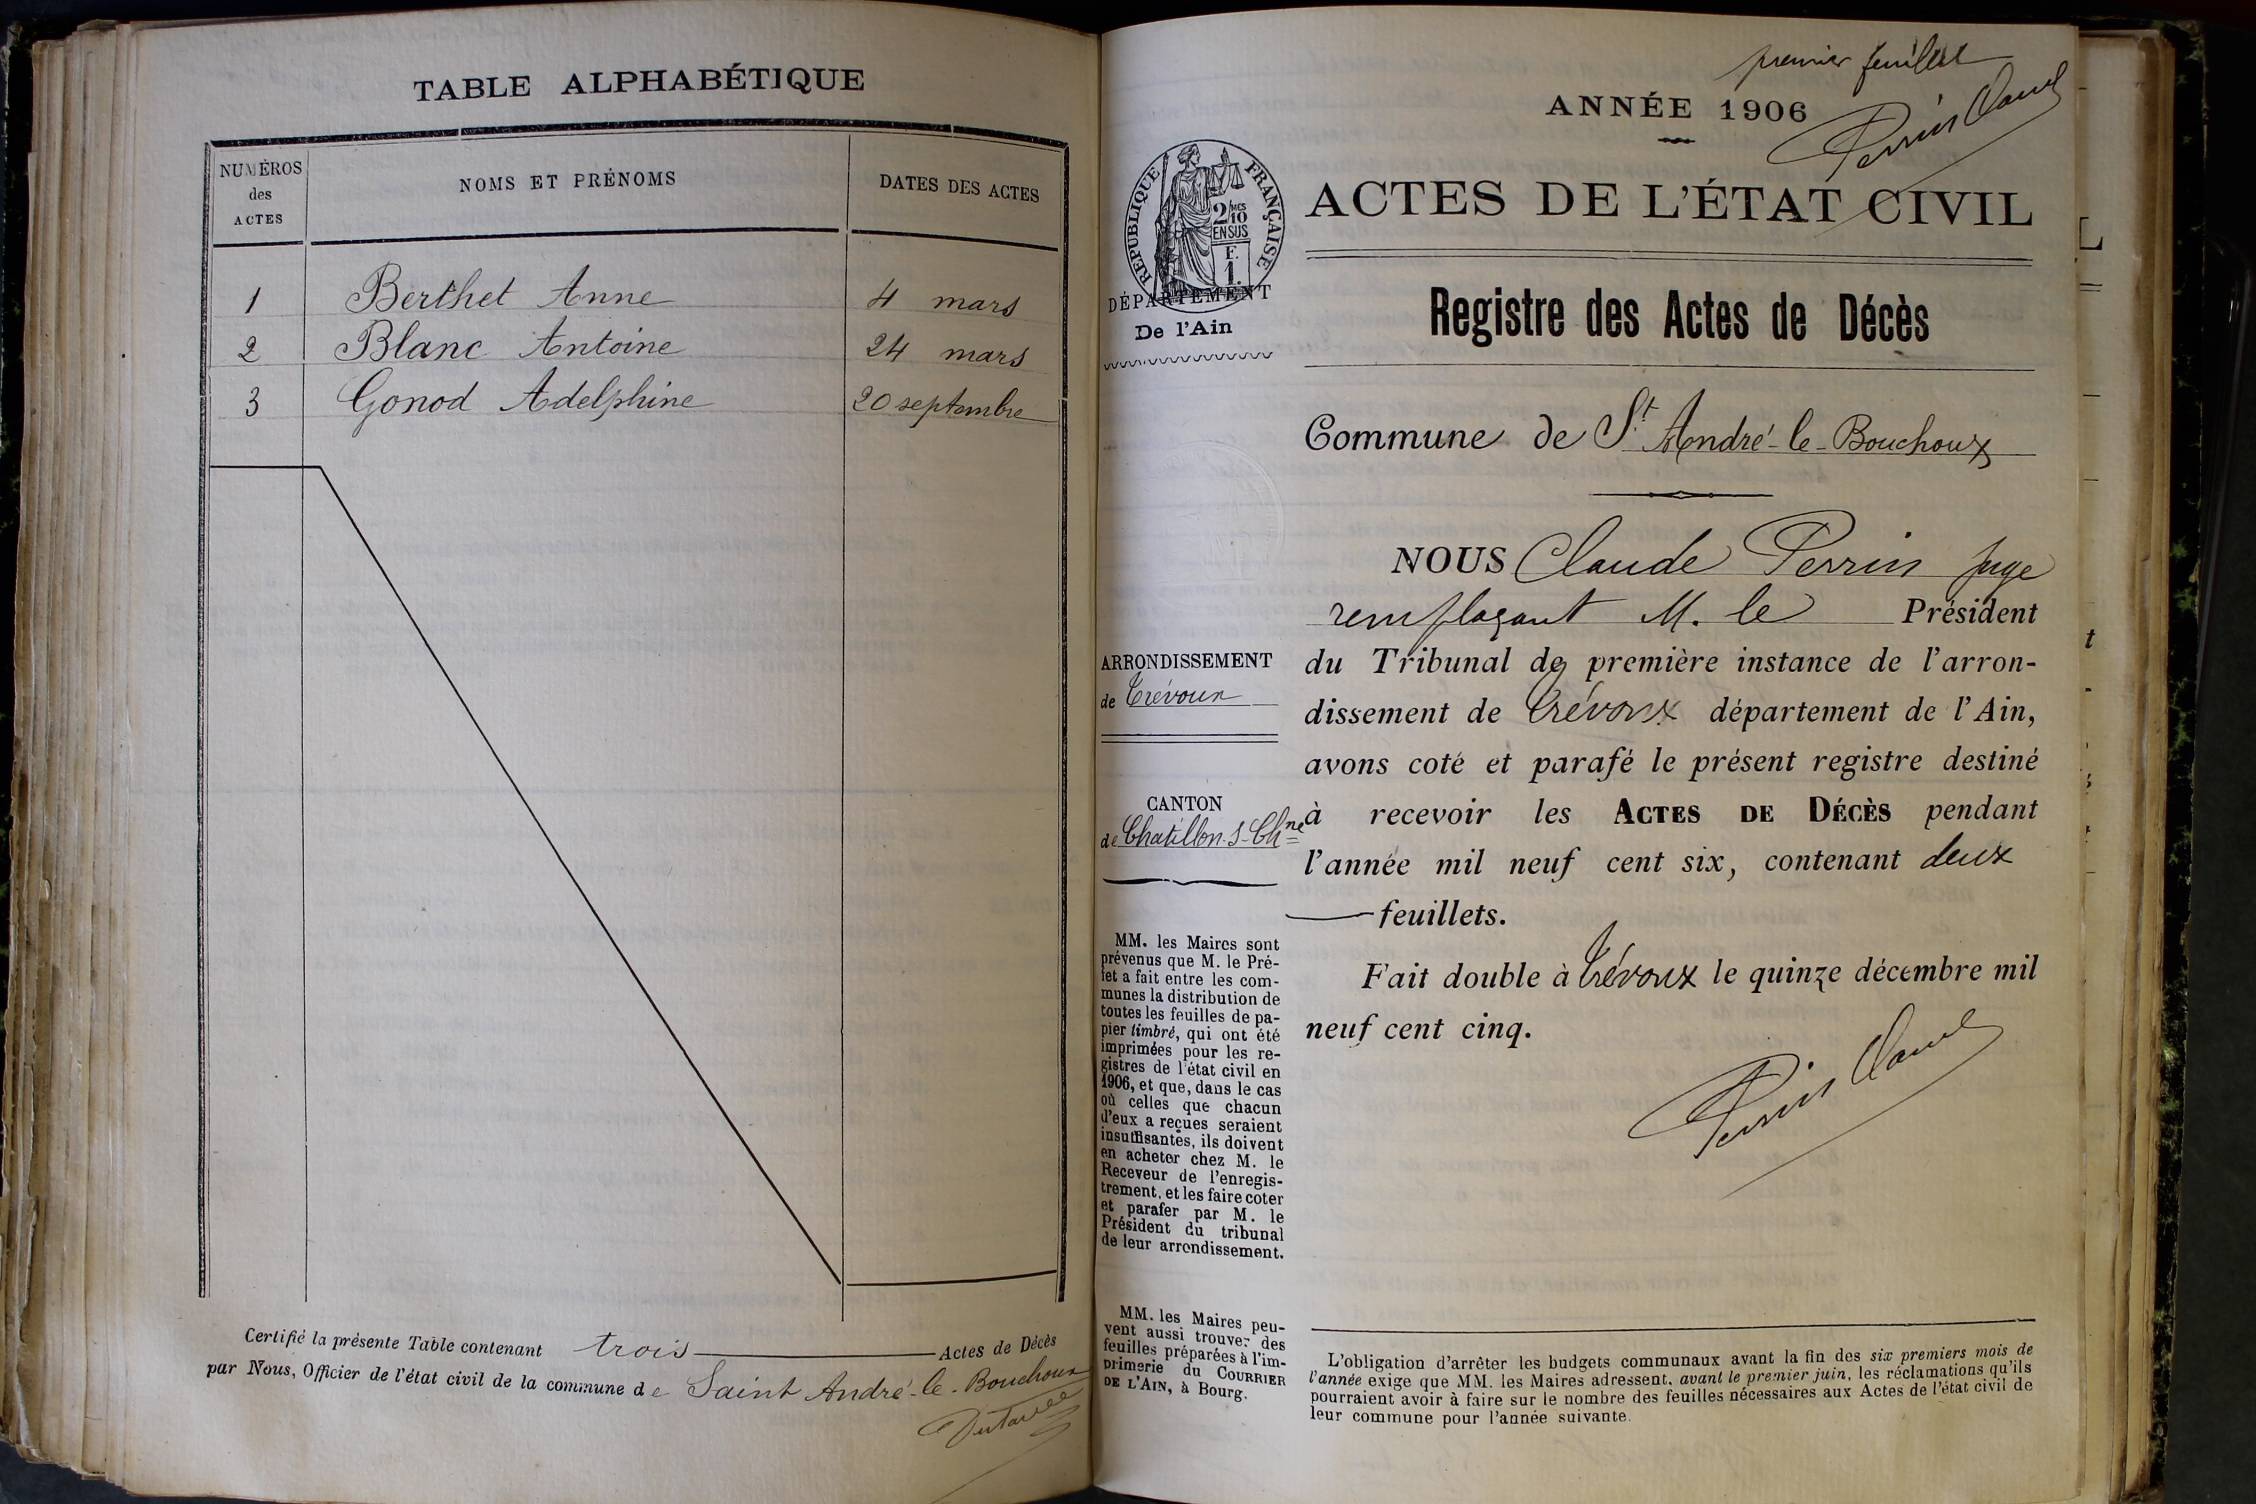 TABLE ALPHABÉTIQUE
NUMÉROS
des
ACTES
NOMS ET PRÉNOMS
DATES DES ACTES
1 Berthet Anne 4 mars
2 Blanc Antoine 24 mars
3 Gonod Adelphine 20 septembre
Certifié la présente Table contenant trois Actes de Décès
par Nous, Officier de l'état civil de la commune de Saint André-le-Bouchoux
premier feuillet
Perrin Claude
ANNÉE 1906
ACTES DE L'ÉTAT CIVIL
RÉPUBLIQUE FRANÇAISE
2/10 MES
EN SUS
F.
1.
DÉPARTEMENT
De l'Ain
Registre des Actes de Décès
Commune de St André-le-Bouchoux
NOUS Claude Perrin juge
remplaçant M. le Président
du Tribunal de première instance de l'arron-
dissement de Trévoux département de l'Ain,
avons coté et parafé le présent registre destiné
à recevoir les ACTES DE DÉCÈS pendant
l'année mil neuf cent six, contenant deux
feuillets.
Fait double à Trévoux le quinze décembre mil
neuf cent cinq.
Perrin Claude
ARRONDISSEMENT
de Trévoux
CANTON
de Chatillon-s-Chne
MM. les Maires sont
prévenus que M. le Pré-
fet a fait entre les com-
munes la distribution de
toutes les feuilles de pa-
pier timbré, qui ont été
imprimées pour les re-
gistres de l'état civil en
1906, et que, dans le cas
où celles que chacun
d'eux a reçues seraient
insuffisantes, ils doivent
en acheter chez M. le
Receveur de l'enregis-
trement, et les faire coter
et parafer par M. le
Président du tribunal
de leur arrondissement.
MM. les Maires peu-
vent aussi trouver des
feuilles préparées à l'im-
primerie du COURRIER
DE L'AIN, à Bourg.
L'obligation d'arrêter les budgets communaux avant la fin des six premiers mois de
l'année exige que MM. les Maires adressent, avant le premier juin, les réclamations qu'ils
pourraient avoir à faire sur le nombre des feuilles nécessaires aux Actes de l'état civil de
leur commune pour l'année suivante.